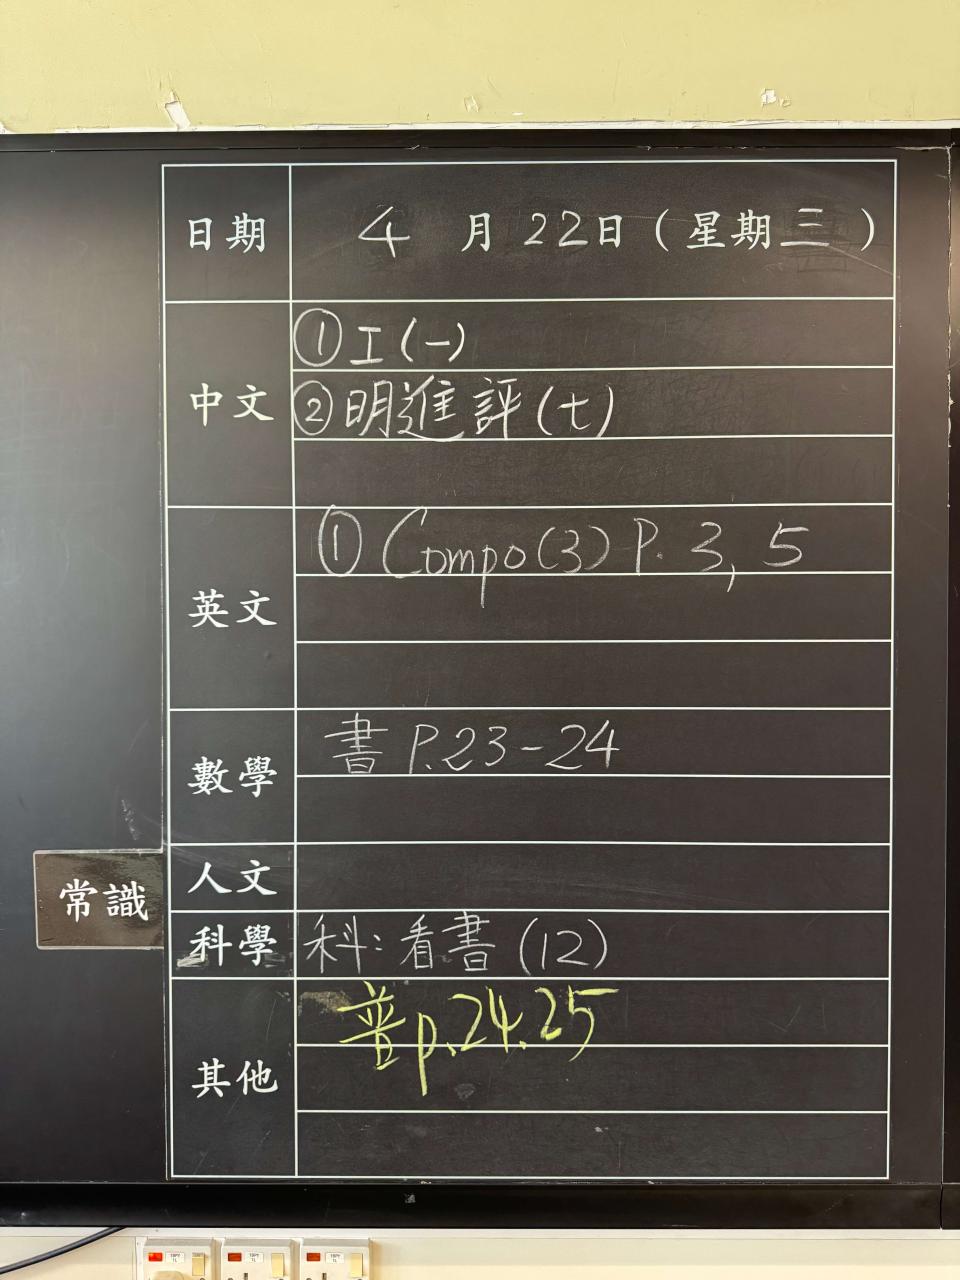 日期 4 月 22日（星期三）
中文 ①工(一)
②明進評(七)
英文 ① Compo(3) P. 3, 5
數學 書 P.23-24
人文
常識
科學 科：看書(12)
其他 普 p.24.25